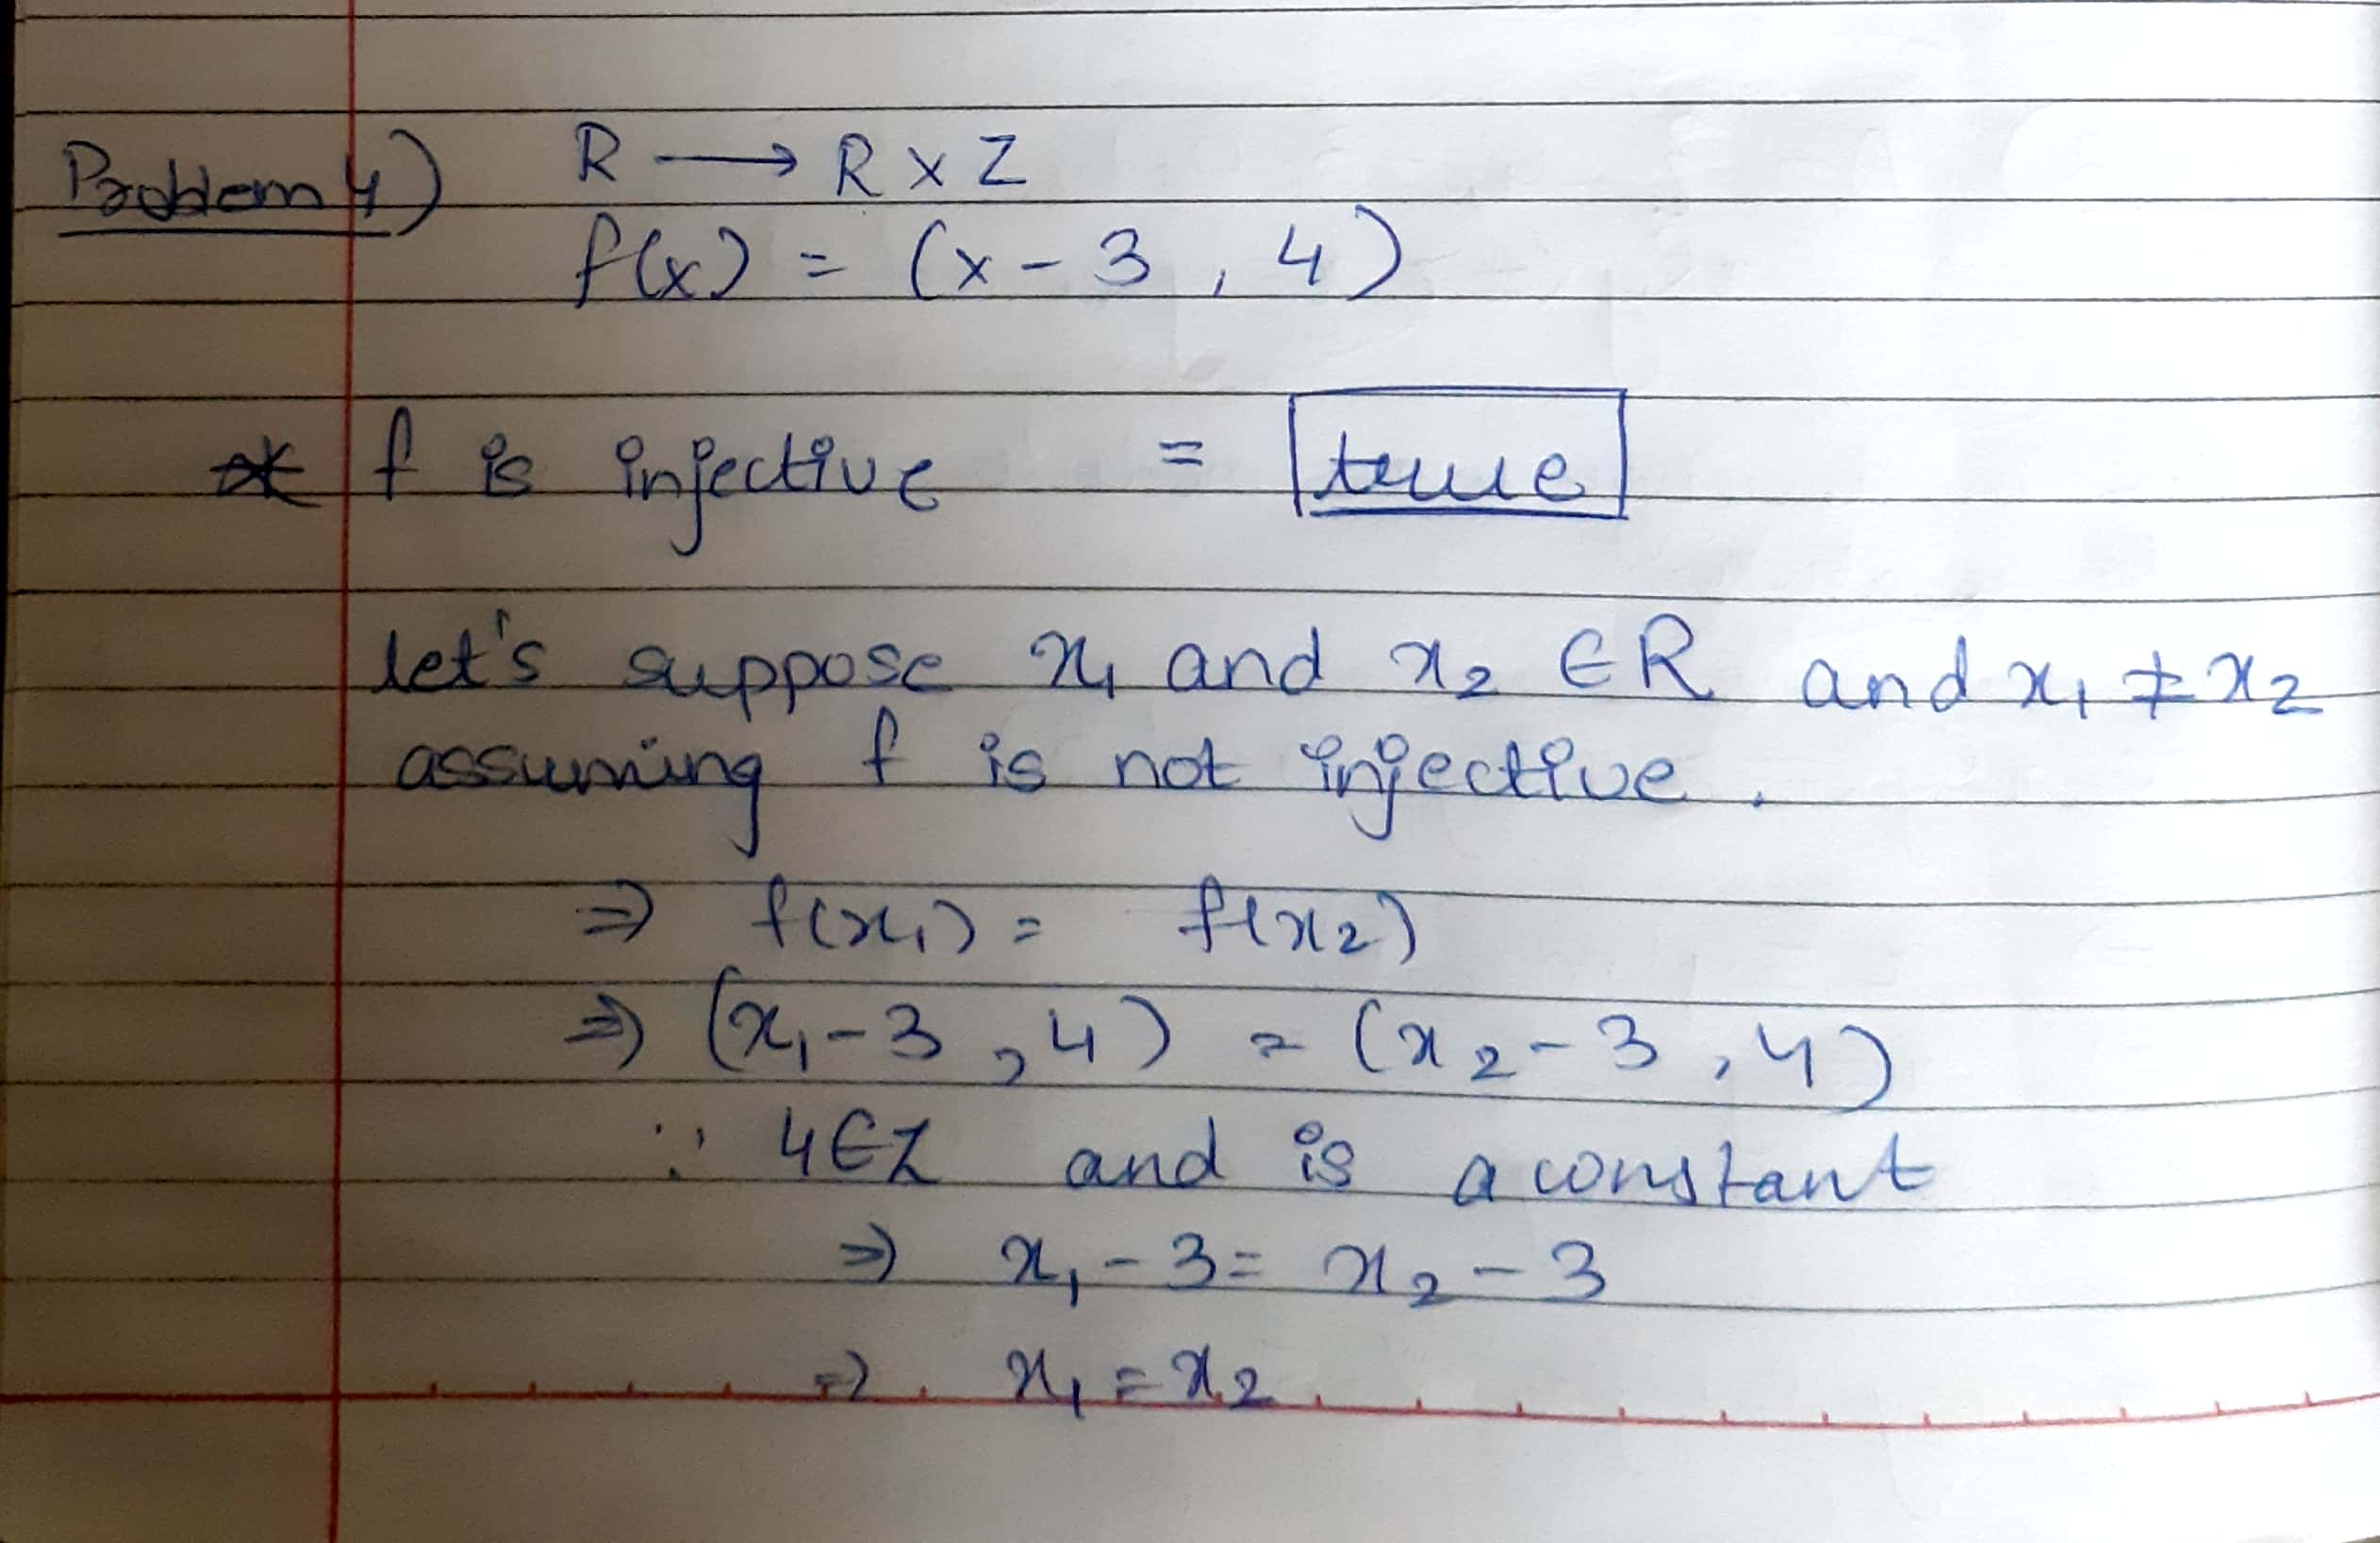 Problem 4) R → R x Z
f(x) = (x - 3 , 4)
* f is injective = true
let's suppose x₁ and x₂ ∈ R and x₁ ≠ x₂
assuming f is not injective.
⇒ f(x₁) = f(x₂)
⇒ (x₁ - 3 , 4) = (x₂ - 3 , 4)
∵ 4 ∈ Z and is a constant
⇒ x₁ - 3 = x₂ - 3
⇒ x₁ = x₂